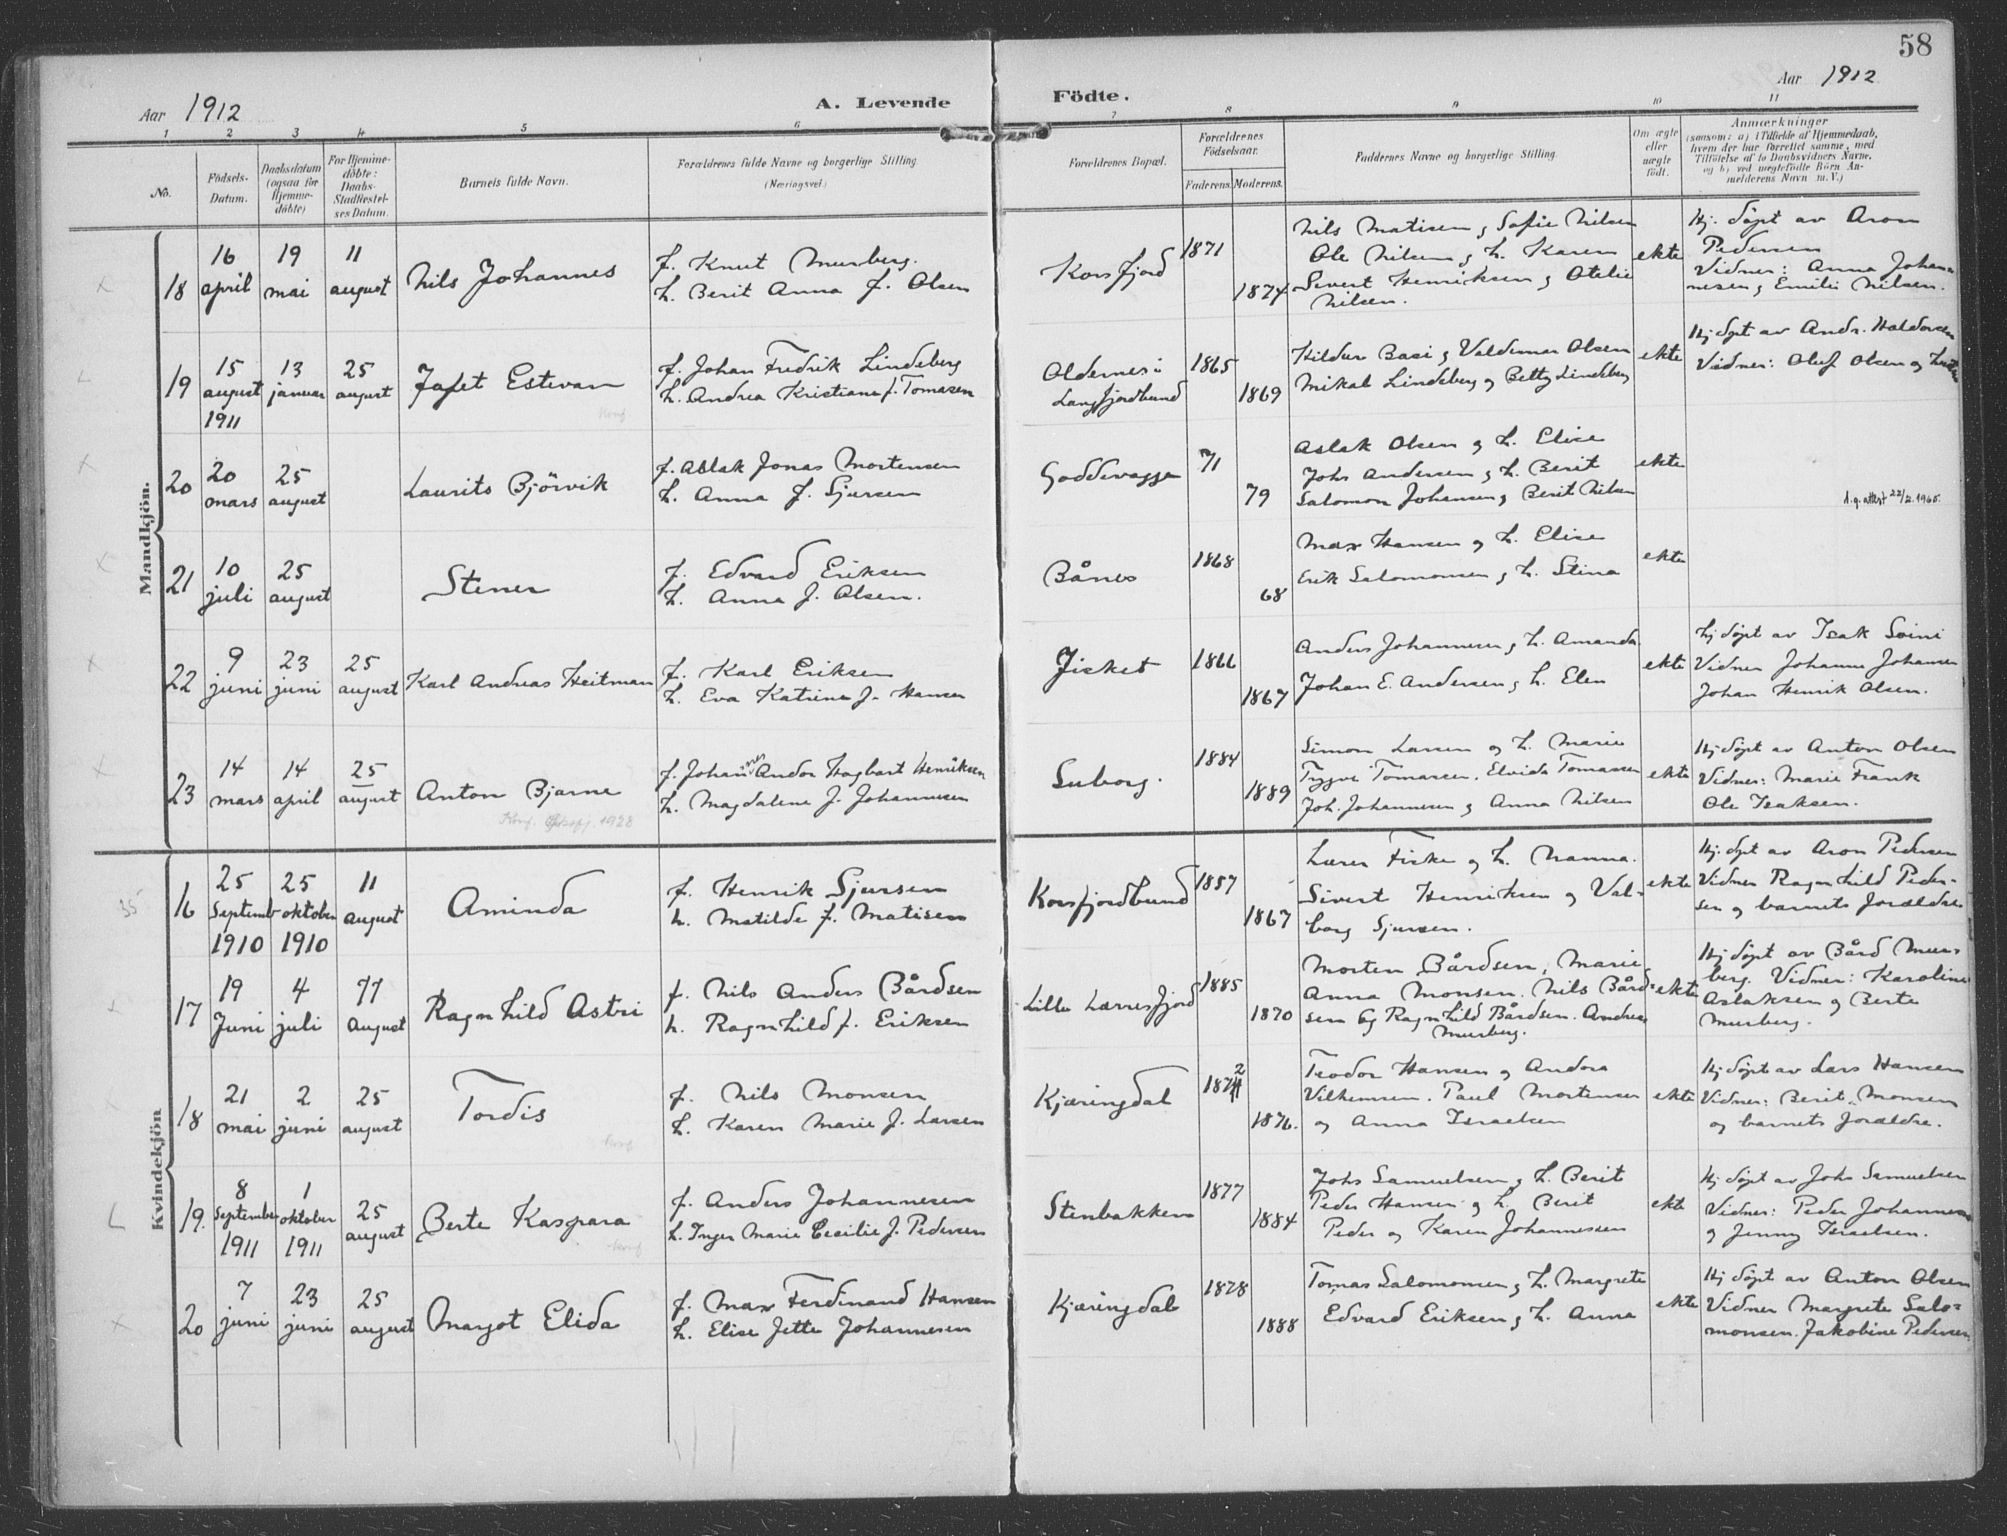 58
Aar 1912
A. Levende
Födte.
Aar 1912
1 2 3 4 5 6 7 8 9 10 11
No.
Födsels-
Datum.
Daabsdatum
(ogsaa for
Hjemme-
döbte)
For Hjemme-
döbte:
Daabs-
Stadfæstel-
ses Datum.
Barnets fulde Navn.
Forældrenes fulde Navne og borgerlige Stilling
(Næringsvei.)
Forældrenes Bopæl.
Forældrenes
Födselsaar.
Faderens. Moderens.
Faddernes Navne og borgerlige Stilling.
Om ægte
eller
uægte
födt.
Anmærkninger
(saasom: a) i Tilfælde af Hjemmedaab,
hvem der har forrettet samme, med
Tilföielse af to Daabsvidners Navne,
og b) ved uægtefödte Börn An-
melderens Navn m. V.)
Mandkjön.
18
16
april
19
mai
11
august
Nils Johannes
f. Knut Murberg.
h. Berit Anna f. Olsen
Korsfjord
1871
1874
Nils Matisen og Sofie Nilsen
Ole Nilsen og h. Karen
Sivert Henriksen og Otelie
Nilsen.
ekte
Hj. døpt av Aron
Pedersen
Vidner: Anna Johan-
nesen og Emilie Nilsen.
19
15
august
1911
13
januar
25
august
Jafet Estevan
Konf.
f. Johan Fredrik Lindeberg
h. Andrea Kristiane f. Tomasen
Oldernes i
Langfjordbund
1865
1869
Hildur Basi og Valdemar Olsen
Mikal Lindeberg og Betty Lindeberg
ekte
Hj døpt av Andr. Haldorsen
Vidner: Oluf Olsen og
20
20
mars
25
august
Laurits Björvik
f. Aslak Jonas Mortensen
h. Anna f. Sjursen
Goddevagge
71
79
Aslak Olsen og h. Elise
Johs Andersen og h. Berit
Salomon Johansen og Berit Nilsen
ekte
d.g. attest 22/2.1965.
21
10
juli
25
august
Stener
f. Edvard Eriksen
h. Anna f. Olsen.
Bånes
1868
68
Max Hansen og h. Elise
Erik Salomonsen og h. Stina
ekte
22
9
juni
23
juni
25
august
Karl Andreas Heitman
f. Karl Eriksen
h. Eva Katrine f. Hansen
Jisket
1866
1867
Anders Johannesen og h. Amanda
Johan E. Andersen og h. Elen
ekte
Hj døpt av Isak Soini
Vidner Johanne Johansen
Johan Henrik Olsen.
23
14
mars
14
april
25
august
Anton Bjarne
Konf. 1928
f. Johan Andor Hagbart Henriksen
h. Magdalene f. Johannesen
Suborg.
1884
1889
Simon Larsen og h. Marie
Trygve Tomassen. Elvida Tomassen
Joh. Johannesen og Anna Nilsen
ekte
Hj døpt av Anton Olsen
Vidner: Marie Frank
Ole Isaksen.
Kvindekjön
16
25
Septemb
1910
25
oktober
1910
11
august
Aminda
f. Henrik Sjursen
h. Matilde f. Matisen
Korsfjordbund
1857
1867
Lærer Fiske og h. Nanna.
Sivert Henriksen og Val-
borg Sjursen.
ekte
Hj. døpt av Aron Pedersen
Vidner Ragnhild Peder-
sen og barnets forældre
17
19
Juni
4
juli
11
august
Ragnhild Astri
f. Nils Anders Bårdsen
h. Ragnhild f. Eriksen
Lille Lerresfjord
1885
1870
Morten Bårdsen, Marie
Anna Monsen. Nils Bård-
sen og Ragnhild Bårdsen. Andreas
Murberg.
ekte
Hj døpt av Bård Mur-
berg. Vidner: Karoline
Aslaksen og Berte
Murberg.
18
21
mai
2
juni
25
august
Tordis
Konf.
f. Nils Monsen
h. Karen Marie f. Larsen
Kjæringdal
1872
1876.
Teodor Hansen og Andora
Vilhemsen. Paul Mortensen
og Anna Israelsen
ekte
Hj døpt av Lars Hansen
Vidner: Berit Monsen
og barnets forældre.
19.
8
September
1911
1
oktober
1911
25
august
Berte Kaspara
Konf
f. Anders Johannesen
h. Inger Marie Cecilie f. Pedersen
Stenbakken
1877
1884
Johs Samuelsen og h. Berit
Peder Hansen og h. Berit
Peder og Karen Johannessen
ekte
Hj. døpt av Johs Samuelsen
Vidner: Peder Johannesen
og Jenny Israelsen.
20
7
juni
23
juni
25
august
Margot Elida
f. Max Ferdinand Hansen
h. Elise Jette Johannesen
Kjæringdal
1878
1888
Tomas Salomonsen og h. Margrete
Edvard Eriksen og h. Anna
ekte
Hj døpt av Anton Olsen
Vidner Margrete Salo-
monsen. Jakobine Pedersen